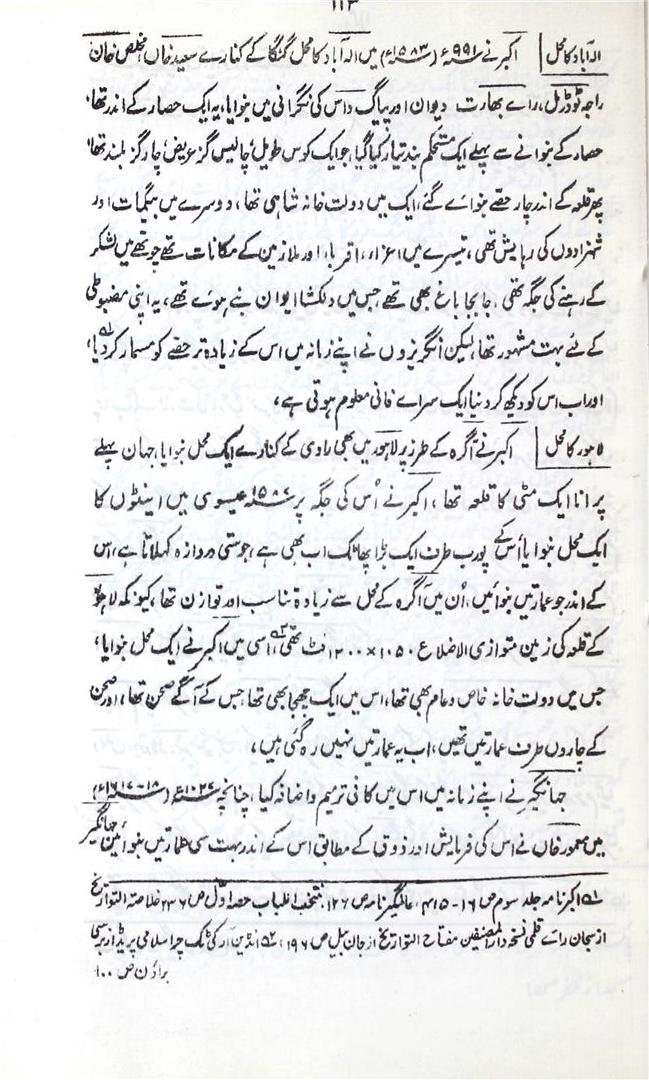 ۱۱۳
الہ آباد کا محل | اکبر نے ۹۹۱ھ (۱۵۸۳ء) میں الہ آباد کا محل گنگا کے کنارے سعید خاں، مخلص خان
راجہ ٹوڈرمل، راے بھارت دیوان اور پیاگ داس کی نگرانی میں بنوایا، یہ ایک حصار کے اندر تھا،
حصار کے بنوانے سے پہلے ایک مستحکم بند تیار کیا گیا، جو ایک کوس طویل، چالیس گز عریض، چار گز بلند تھا
پھر قلعہ کے اندر چار حصے بنواے گئے، ایک میں دولت خانہ شاہی تھا، دوسرے میں بیگمات اور
شہزادوں کی رہایش تھی، تیسرے میں اعزاء، اقرباء اور ملازمین کے مکانات تھے چوتھے میں لشکر
کے رہنے کی جگہ تھی، جابجا باغ بھی تھے جس میں دلکشا ایوان بنے ہوئے تھے، یہ اپنی مضبوطی
کے لئے بہت مشہور تھا، لیکن انگریزوں نے اپنے زمانہ میں اس کے زیادہ تر حصے کو مسمار کر دیا،
اور اب اس کو دیکھ کر دنیا ایک سراے فانی معلوم ہوتی ہے،
لاہور کا محل | اکبر نے آگرہ کے طرز پر لاہور میں بھی راوی کے کنارے ایک محل بنوایا، جہان پہلے
پرانا ایک مٹی کا قلعہ تھا، اکبر نے اُس کی جگہ پر عیسوی میں اینٹوں کا
ایک محل بنوایا، اُس کے پورب طرف ایک بڑا پھاٹک اب بھی ہے، جو مستی دروازہ کہلاتا ہے، اس
کے اندر جو عمارتیں بنوائیں، اُن میں آگرہ کے محل سے زیادہ تناسب اور توازن تھا، کیونکہ لاہور
کے قلعہ کی زمین متوازی الاضلاع ۱۰۵۰×۱۲۰۰ فٹ تھی، اسی میں اکبر نے ایک محل بنوایا،
جس میں دولت خانہ خاص و عام بھی تھا، اس میں ایک چھجا بھی تھا، جس کے آگے صحن تھا، اور صحن
کے چاروں طرف عمارتیں تھیں، اب یہ عمارتیں نہیں رہ گئی ہیں،
جہانگیر نے اپنے زمانہ میں اس میں کافی ترمیم و اضافہ کیا، چنانچہ (۱۸-۱۶۱۷ء)
میں معمور خاں نے اس کی فرمایش اور ذوق کے مطابق اس کے اندر بہت سی عمارتیں بنوائیں، جہانگیر
۱؎ اکبر نامہ جلد سوم ص ۱۶-۴۱۵، عالمگیر نامہ ص ۱۲۶، منتخب اللباب حصہ اول ص ۲۳۶، خلاصۃ التواریخ
از سبحان رائے قلمی نسخہ دار المصنفین مفتاح التواریخ از جان بیل ص ۱۹۶، ۲؎ انڈین آرکی ٹک چر اسلامی پریڈ از پرسی
براؤن ص ۱۰۰